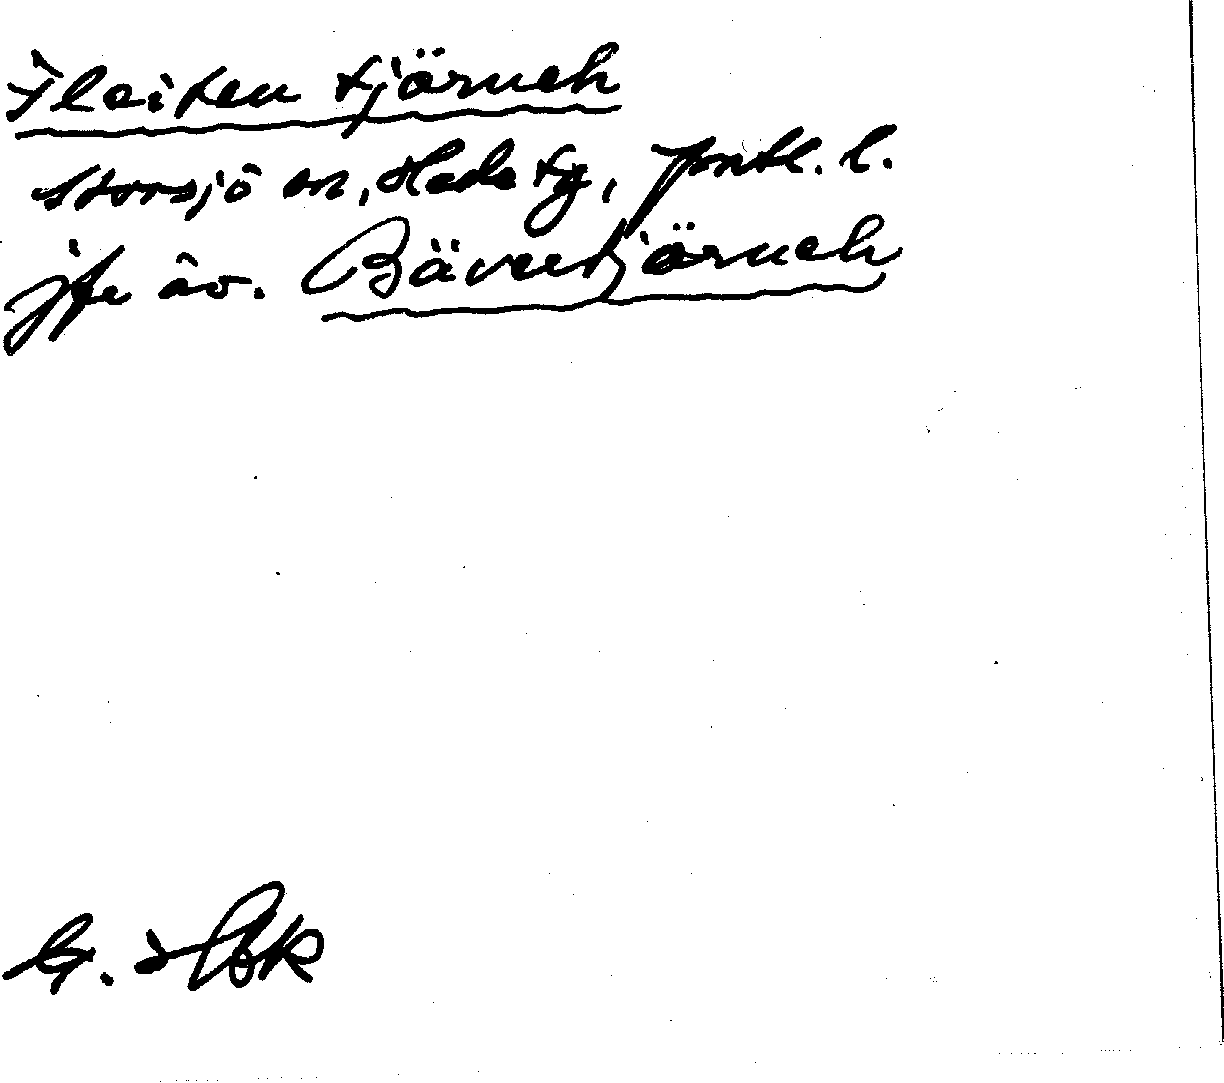 Floiten tjärneh
Storsjö sn, Hede tg, pntl. l.
jfr äv. Bävertjärneh
G.